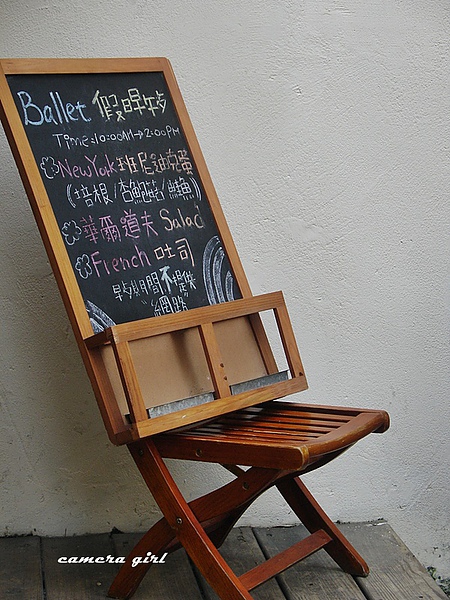 Ballet 假日早午餐
Time:10:00AM→2:00PM
New York 班尼迪克蛋
(培根/杏鮑菇/燻鮭魚)
華爾道夫 Salad
French 吐司
早午餐期間不提供
"網路"
camera girl